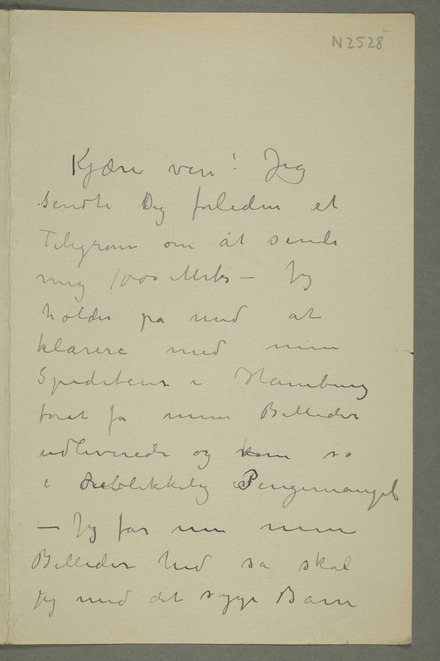 N 2528
Kjære ven! Jeg
sendte Dig forleden et
Telegram om at sende
mig 1000 Mrks – Jeg
holder på med at
klarere med min
Spediteur i Hamburg
foråt få mine Billeder
udleverede og kom så
i øieblikkelig Pengemangel
– Jeg får nu mine
Billeder hid så skal
jeg med det syge Barn